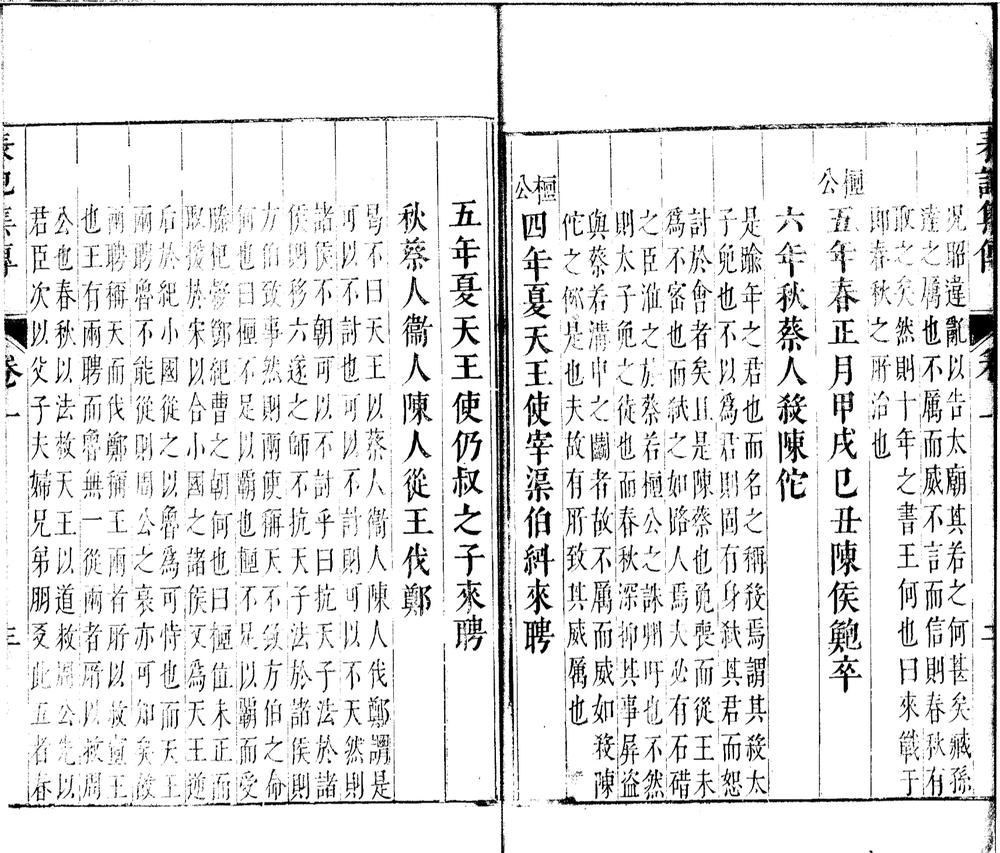 況昭違亂以告太廟其若之何甚矣臧孫
達之厲也不厲而威不言而信則春秋有
取之矣然則十年之書王何也曰來戰于
郎春秋之所治也
桓公
五年春正月甲戌己丑陳侯鮑卒
六年秋蔡人殺陳佗
是踰年之君也而名之稱殺焉謂其殺太
子免也不以為君則固有身弒其君而恕
討於會者矣且是陳蔡也免喪而從王未
為不審也而弒之如路人焉大必有石碏
之臣涖之於蔡若桓公之誅州吁也不然
則太子免之徒也而春秋深抑其事屏盜
與蔡若溝中之鬬者故不厲而威如殺陳
佗之例是也夫故有所致其威厲也
桓公
四年夏天王使宰渠伯糾來聘
五年夏天王使仍叔之子來聘
秋蔡人衞人陳人從王伐鄭
曷不曰天王以蔡人衞人陳人伐鄭謂是
可以不討也可以不討則可以不天然則
諸侯不朝可以不討乎曰抗天子法於諸
侯則移六遂之師不抗天子法於諸侯則
方伯致事然則兩使稱天不致方伯之命
何也曰桓不足以霸也桓不足以霸而受
滕杞穀鄧紀曹之朝何也曰桓值未正而
取援於宋以合小國之諸侯又為天王逆
后於紀小國從之以魯為可恃也而天王
兩聘魯不能從則周公之衰亦可知矣故
兩聘稱天而伐鄭稱王兩者所以救宣王
也王有兩聘而魯無一從兩者所以救周
公也春秋以法救天王以道救周公先以
君臣次以父子夫婦兄弟朋友此五者春
表記集傳
卷一
三
表記集傳
卷一
二